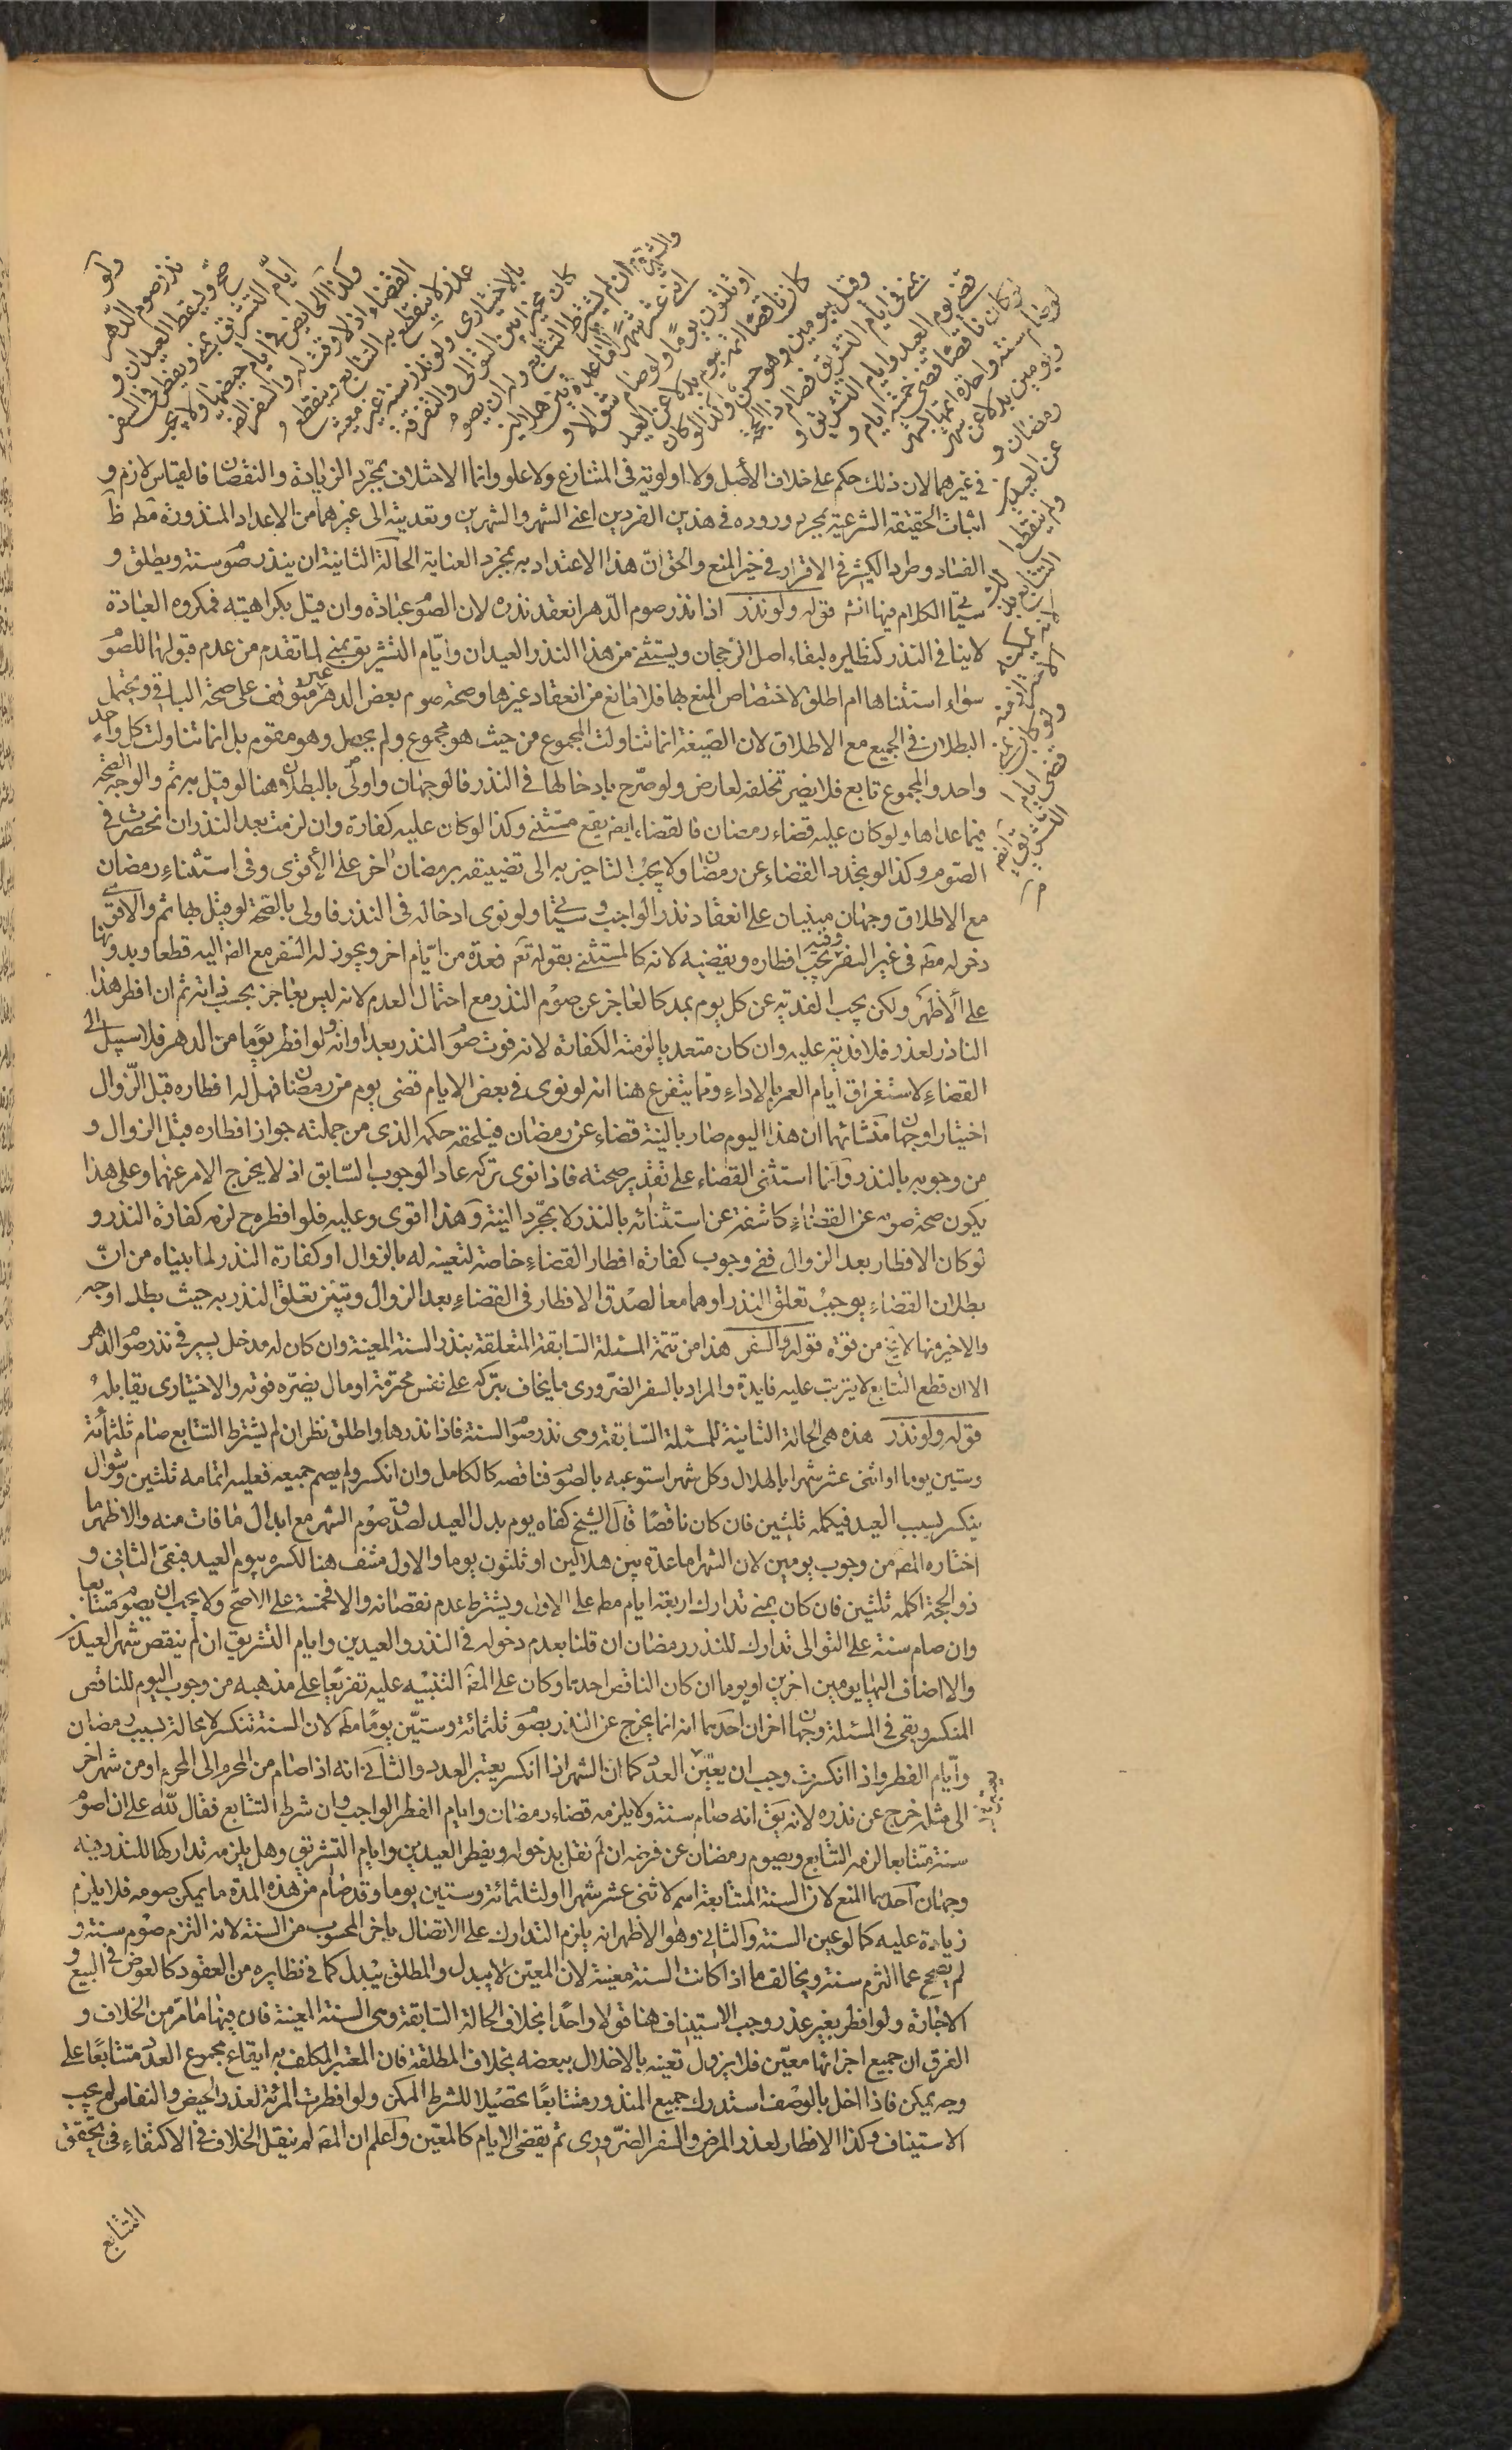 ولو
نذر صوم الدهر
صح ويسقط العيدان و
ايام التشريق بمنى ويفطر في السفر
وكذا الحايض في ايام حيضها ولا يجب
القضاء اذ لا وقت له والسفر الضر
عذر لا ينقطع به التتابع وينقطع
بالاختياري ولو نذر سنة غير معينة
كان مخيرا بين التوالي والتفرقة
ان لم يشترط التتابع وله ان يصوم
اثني عشر شهرا والشهر اما عدة بين هلالين
او ثلثون يوما ولو صام شوالا و
كان ناقصا اتمه بيوم بدلا عن العيد
وقيل بيومين وهو حسن وكذا لو كان
بمنى في ايام التشريق فصام ذا الحجة
قضى يوم العيد وايام التشريق و
لو كان ناقصا قضى خمسة ايام و
لو صام سنة واحدة اتمها بشهر
ويومين بدلا عن شهر
رمضان و
عن العيدين
ولم ينقطع
التتابع بذلك
لانه لا يمكنه
الاحتراز منه
ولو كان بمنى
قضى ايام
التشريق ايضا
في غيرهما لان ذلك حكم على خلاف الأصل ولا اولوية في المتنازع ولا علو وانما الاختلاف بمجرد الزيادة والنقصان فالقياس لازم و
اثبات الحقيقة الشرعية بمجرد وروده في هذين الفردين اعني الشهر والشهرين وتعديته الى غيرهما من الاعداد المنذورة مطـ ظ
الفساد وطرد الكثير في الاقرار في خير المنع والحق ان هذا الاعتداد به بمجرد العناية الحالة الثانية ان ينذر صوم سنة ويطلق و
سيأتي الكلام فيها انشـ قوله ولو نذر اذا نذر صوم الدهر انعقد نذره لان الصوم عبادة وان قيل بكراهيته فمكروه العبادة
لا ينافي النذر كنظايره لبقاء اصل الرجحان ويستثنى من هذا النذر العيدان وايام التشريق بمنى لما تقدم من عدم قبولها للصوم
سواء استثناها ام اطلق لاختصاص المنع بها فلا مانع من انعقاد غيرها وصحة صوم بعض الدهر غير متوقف على صحة الباقي ويحتمل
البطلان في الجميع مع الاطلاق لان الصيغة انما تناولت المجموع من حيث هو مجموع ولم يحصل وهو مقوم بل انما تناولت كل واحد
واحد والمجموع تابع فلا يضر تخلفه لعارض ولو صرح بادخالها في النذر فالوجهان واولى بالبطلان هنا لو قيل به ثم والوجه الصحة
فيما عداها ولو كان عليه قضاء رمضان فالقضاء ايضـ يقع مستثنى وكذا لو كان عليه كفارة وان لزمت بعد النذر ان انحصرت في
الصوم وكذا لو تجدد القضاء عن رمضان ولا يجب التاخير به الى تضييقه برمضان اخر على الأقوى وفي استثناء رمضان
مع الاطلاق وجهان مبنيان على انعقاد نذر الواجب وسيأتي ولو نوى ادخاله في النذر فاولى بالصحة لو قيل بها ثم والاقوى
دخوله مطـ في غير السفر وفيه يجب افطاره ويقضيه لانه كالمستثنى بقوله تعـ فعدة من ايام اخر ويجوز له السفر مع الضـ اليه قطعا وبدونها
على الأظهر ولكن يجب الفدية عن كل يوم بمد كالعاجز عن صوم النذر مع احتمال العدم لانه ليس بعاجز بحسب ذاته ثم ان افطر هذا
الناذر لعذر فلا فدية عليه وان كان متعمدا لزمته الكفارة لانه فوت صوم النذر بعد اوانه ولو افطر يوما من الدهر فلا سبيل الى
القضاء لاستغراق ايام العمر بالاداء ومما يتفرع هنا انه لو نوى في بعض الايام قضى يوم من رمضان فهل له افطاره قبل الزوال
اختيارا وجهان منشائهما ان هذا اليوم صار بالنية قضاء عن رمضان فيلحقه حكمه الذي من جملته جواز افطاره قبل الزوال و
من وجوبه بالنذر وانما استثنى القضاء على تقدير صحته فاذا نوى تركه عاد الوجوب السابق اذ لا يخرج الامر عنهما وعلى هذا
يكون صحة صومه عن القضاء كاشفة عن استثنائه بالنذر لا بمجرد النية وهذا اقوى وعليه فلو افطره ح لزمه كفارة النذر و
لو كان الافطار بعد الزوال ففي وجوب كفارة افطار القضاء خاصة لتعينه له بالزوال او كفارة النذر لما بيناه من ان
بطلان القضاء يوجب تعلق النذر او هما معا لصدق الافطار في القضاء بعد الزوال وتبين تعلق النذر به حيث بطل اوجه
والاخير منها لا يخ من قوة قوله والسفر هذا من تتمة المسئلة السابقة المتعلقة بنذر السنة المعينة وان كان له مدخل يسير في نذر صوم الدهر
الا ان قطع التتابع لا يترتب عليه فايدة والمراد بالسفر الضروري ما يخاف بتركه على نفس محترمة او مال يضره فوته والاختياري يقابله
قوله ولو نذر هذه هي الحالة الثانية للمسئلة السابقة وهي نذر صوم السنة فاذا نذرها واطلق نظر ان لم يشترط التتابع صام ثلثمائة
وستين يوما او اثني عشر شهرا بالهلال وكل شهر استوعبه بالصوم فناقصه كالكامل وان انكسر ولم يصم جميعه فعليه اتمامه ثلثين وشوال
ينكسر بسبب العيد فيكمله ثلثين فان كان ناقصا قال الشيخ كفاه يوم بدل العيد لصدق صوم الشهر مع ابدال ما فات منه والاظهر ما
اختاره المصـ من وجوب يومين لان الشهر اما عدة بين هلالين او ثلثون يوما والاول منتف هنا لكسره بيوم العيد فبقى الثاني و
ذو الحجة اكمله ثلثين فان كان بمنى تدارك اربعة ايام مطـ على الاول ويشترط عدم نقصانه والا فخمسة على الاصح ولا يجب ان يصوم متتابعا
وان صام سنة على التوالي تدارك للنذر رمضان ان قلنا بعدم دخوله في النذر والعيدين وايام التشريق ان لم ينقص شهر العيدين
والا اضاف اليها يومين اخرين او يوما ان كان الناقص احدهما وكان على المصـ التنبيه عليه تفريعا على مذهبه من وجوب اليوم للناقص
المنكسر وبقى في المسئلة وجهان اخران احدهما انه انما يخرج عن النذر بصوم ثلثمائة وستين يوما مطـ لان السنة تنكسر لا محالة بسبب رمضان
وايام الفطر واذا انكسرت وجب ان يعتبر العدد كما ان الشهر اذا انكسر يعتبر العدد والثاني انه اذا صام من المحرم الى المحرم او من شهر اخر
الى مثله خرج عن نذره لانه يقـ انه صام سنة ولا يلزمه قضاء رمضان وايام الفطر الواجب وان شرط التتابع فقال لله علي ان اصوم
سنة متتابعا لزمه التتابع ويصوم رمضان عن فرضه ان لم نقل بدخوله ويفطر العيدين وايام التشريق وهل يلزمه تداركها للنذر فيه
وجهان احدهما المنع لان السنة المتتابعة اسم لاثني عشر شهرا او لثلثمائة وستين يوما وقد صام من هذه المدة ما يمكن صومه فلا يلزم
زيادة عليه كما لو عين السنة والثاني وهو الاظهر انه يلزم التدارك على الاتصال باخر المحسوب من السنة لانه التزم صوم سنة و
لم يصح عما التزم سنة ويخالف ما اذا كانت السنة معينة لان المعين لا يبدل والمطلق يبدل كما في نظايره من العقود كالعوض في البيع و
الاجارة ولو افطر بغير عذر وجب الاستيناف هنا قولا واحدا بخلاف الحالة السابقة وهي السنة المعينة فان فيها ما مر من الخلاف و
الفرق ان جميع اجزائها معين فلا يزول تعينه بالاخلال ببعضه بخلاف المطلقة فان المعتبر المكلف به ايقاع مجموع العدد متتابعا على
وجه يمكن فاذا اخل بالوصف استدرك جميع المنذور متتابعا تحصيلا للشرط الممكن ولو افطرت المرئة لعذر الحيض والنفاس لم يجب
الاستيناف وكذا الافطار لعذر المرض والسفر الضروري ثم يقضى الايام كالمعين واعلم ان المصـ لم ينقل الخلاف في الاكتفاء في تحقق
التتابع